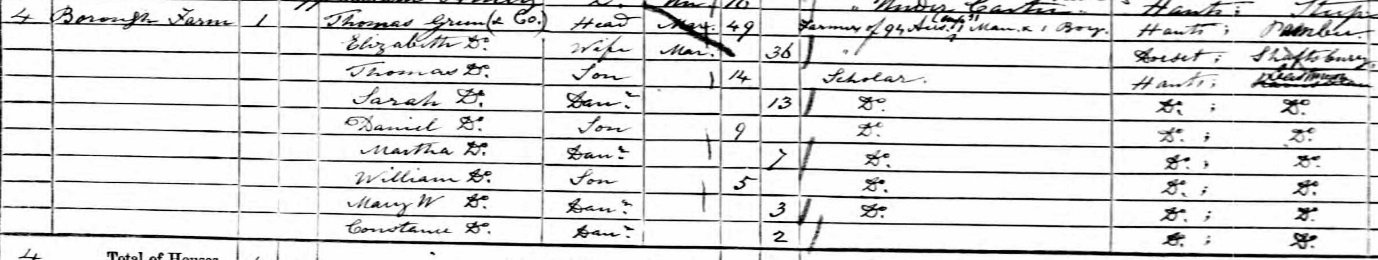 Under Carter " Hants ;
4 Borough Farm 1 Thomas Green (& Co.) Head Mar. 49 Farmer of 94 Acres, Man & 1 Boy. Hants ; Pamber.
Elizabeth Do. Wife Mar. 36 " Dorset ; Shaftsbury.
Thomas Do. Son 14 Scholar. Hants ;
Sarah Do. Daur. 13 Do. Do. ; Do.
Daniel Do. Son 9 Do. Do. ; Do.
Martha Do. Daur. 7 Do. Do. ; Do.
William Do. Son 5 Do. Do. ; Do.
Mary W Do. Daur. 3 Do. Do. ; Do.
Constance Do. Daur. 2 Do. ; Do.
4 Total of Houses